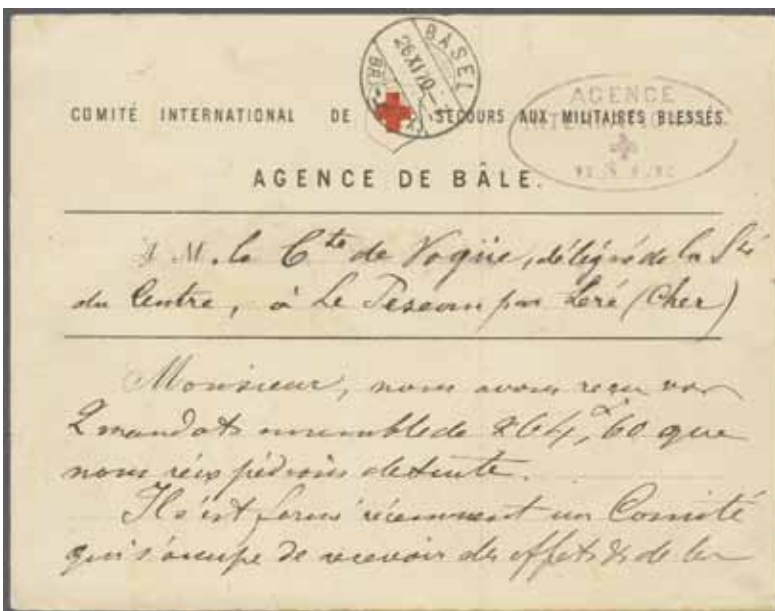 BASEL
26 XI 70
BRF
COMITÉ INTERNATIONAL DE SECOURS AUX MILITAIRES BLESSÉS
AGENCE
INTERNATIONALE
AGENCE DE BÂLE.
A M. le Cte de Vogüe, délégué de la Sté
du Centre, à Le Peseau par Leré (Cher)
Monsieur, nous avons reçu vos
2 mandats ensemble de 264,60 que
nous réexpédions de suite.
Il s'est formé récemment un Comité
qui s'occupe de recevoir des effets & de les